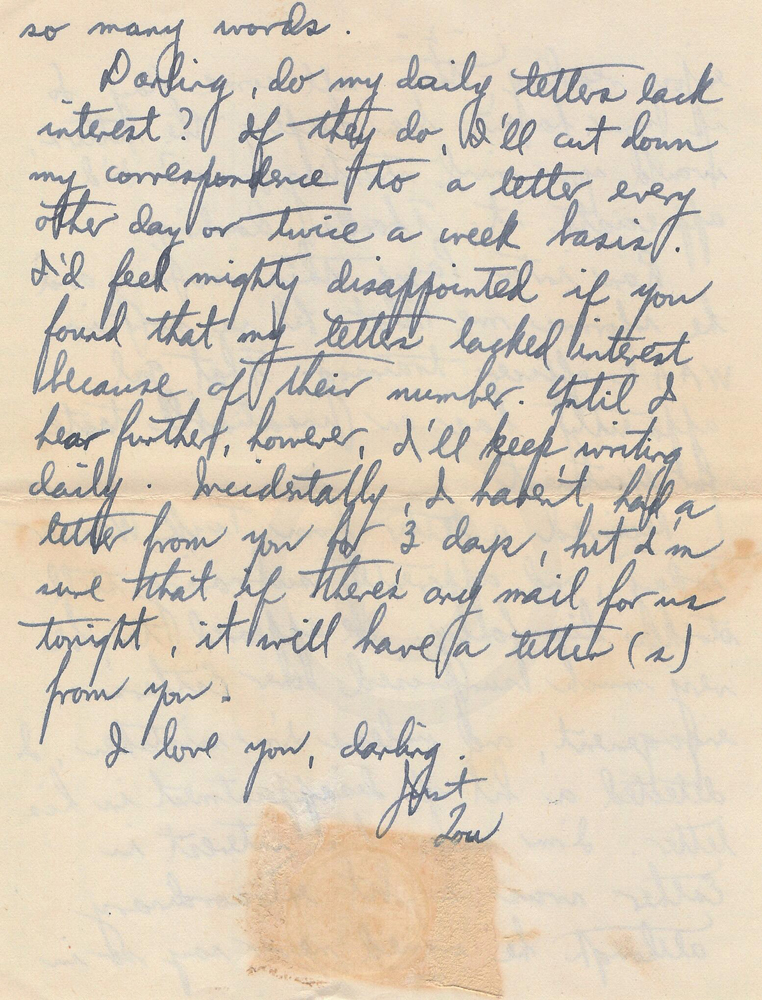 so many words.
Darling, do my daily letters lack
interest? If they do, I'll cut down
my correspondence to a letter every
other day or twice a week basis.
I'd feel mighty disappointed if you
found that my letters lacked interest
because of their number. Until I
hear further, however, I'll keep writing
daily. Incidentally, I haven't had a
letter from you for 3 days, but I'm
sure that if there's any mail for us
tonight, it will have a letter (s)
from you.
I love you, darling.
Just
Lou